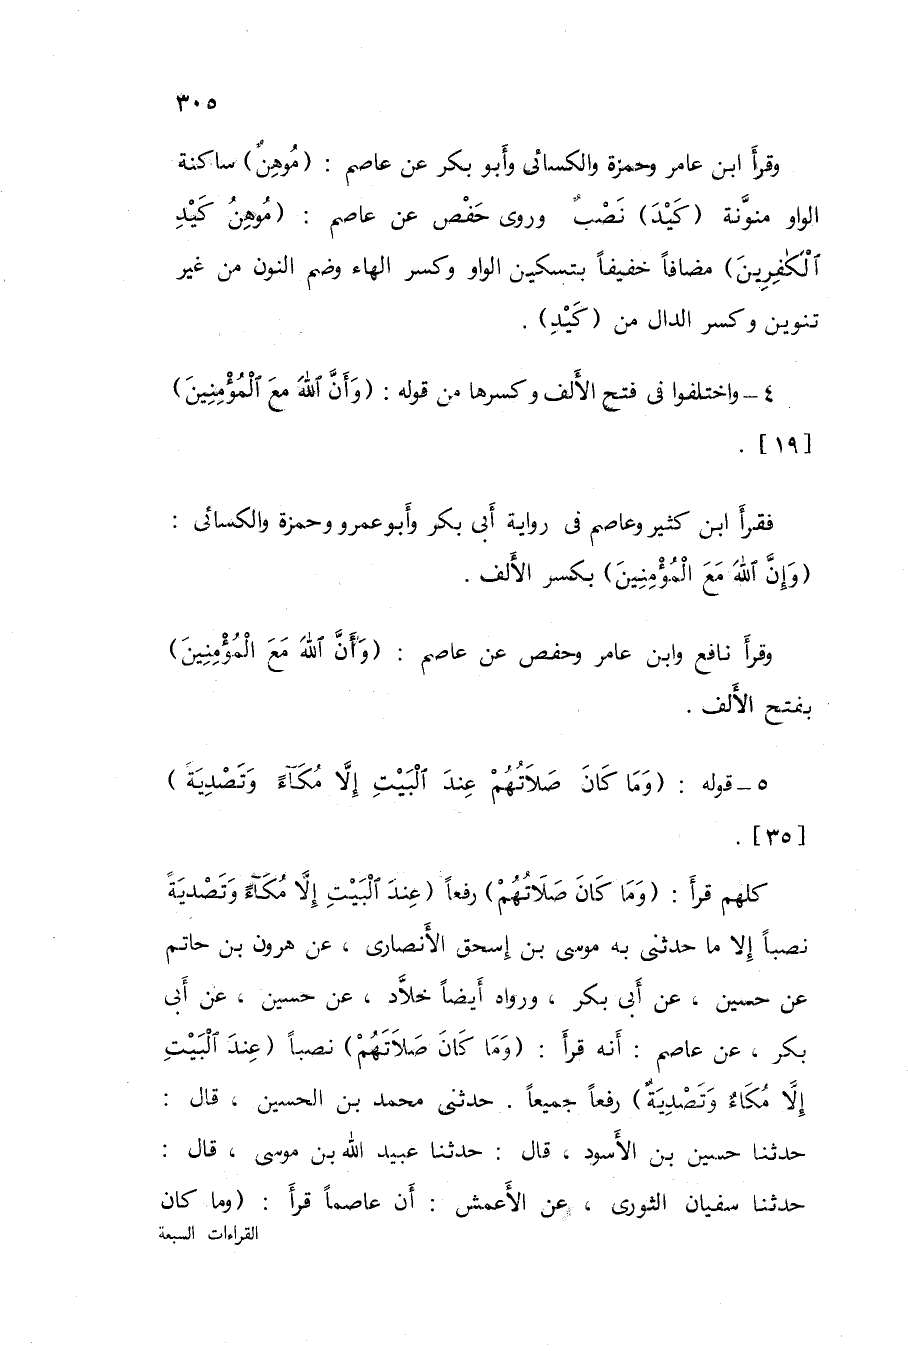 ٣٠٥
وقرأَ ابن عامر وحمزة والكسائى وأَبو بكر عن عاصم : (مُوهِنٌ) ساكنة
الواو منوَّنة (كَيْدَ) نَصْبٌ وروى حَفْص عن عاصم : (مُوهِنُ كَيْدِ
ٱلْكَٰفِرِينَ) مضافاً خفيفاً بتسكين الواو وكسر الهاء وضم النون من غير
تنوين وكسر الدال من (كَيْدِ) .
٤ ـ واختلفوا فى فتح الأَلف وكسرها من قوله : (وَأَنَّ ٱللهَ معَ ٱلْمُؤْمِنِينَ)
[١٩] .
فقرأَ ابن كثير وعاصم فى رواية أَبى بكر وأَبو عمرو وحمزة والكسائى :
(وَإِنَّ ٱللهَ مَعَ الْمُؤْمِنِينَ) بكسر الأَلف .
وقرأَ نافع وابن عامر وحفص عن عاصم : (وَأَنَّ ٱللهَ مَعَ الْمُؤْمِنِينَ)
بفتح الأَلف .
٥ ـ قوله : (وَمَا كَانَ صَلاَتُهُمْ عِندَ ٱلْبَيْتِ إِلَّا مُكَآءً وَتَصْدِيَةً)
[٣٥] .
كلهم قرأَ : (وَمَا كَانَ صَلَاتُهُمْ) رفعاً (عِندَ ٱلْبَيْتِ إِلَّا مُكَآءً وَتَصْدِيَةً
نصباً إِلا ما حدثنى به موسى بن إِسحق الأَنصارى ، عن هرون بن حاتم
عن حسين ، عن أَبى بكر ، ورواه أَيضاً خلاَّد ، عن حسين ، عن أَبى
بكر ، عن عاصم : أَنه قرأَ : (وَمَا كَانَ صَلاَتَهُمْ) نصباً (عِندَ ٱلْبَيْتِ
إِلَّا مُكَاءٌ وَتَصْدِيَةٌ) رفعاً جميعاً . حدثنى محمد بن الحسين ، قال :
حدثنا حسين بن الأَسود ، قال : حدثنا عبيد الله بن موسى ، قال :
حدثنا سفيان الثورى ، عن الأَعمش : أَن عاصماً قرأَ : (وما كان
القراءات السبعة